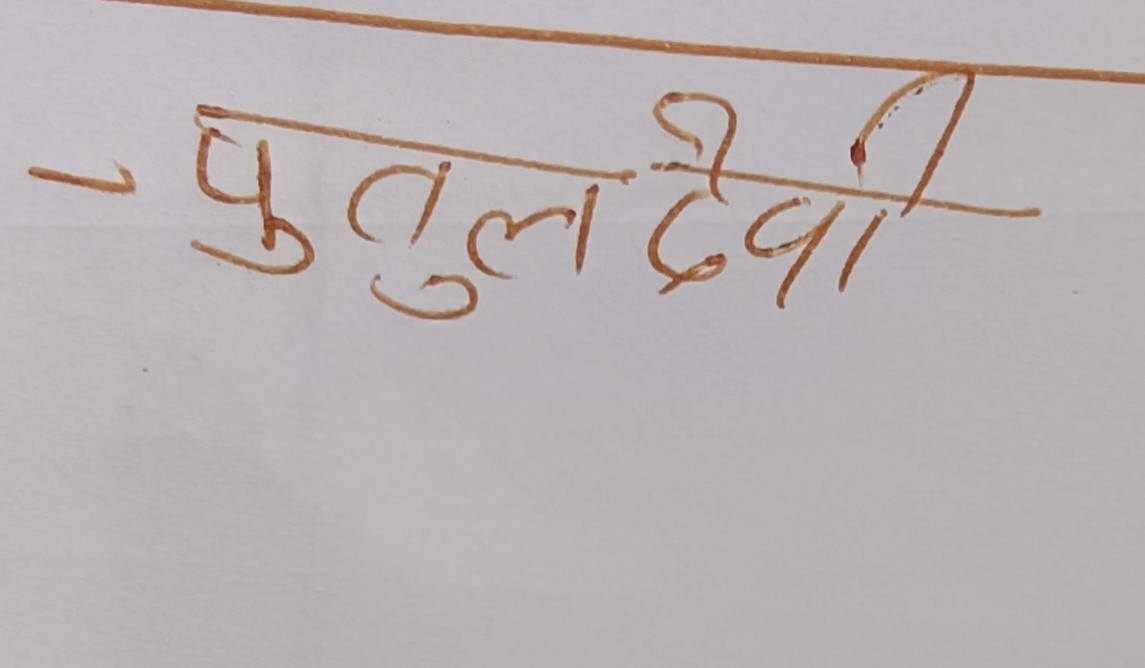 - पुतुल देवी